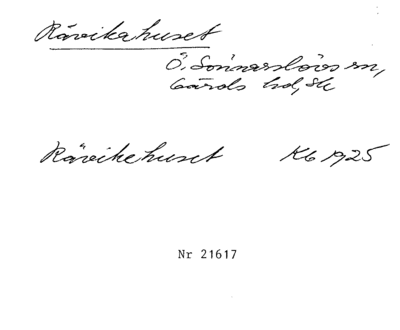 Rävikahuset
Ö. Sönnarslövs sn,
Gärds hd, Sk
Rävikehuset Kb 1925
Nr 21617